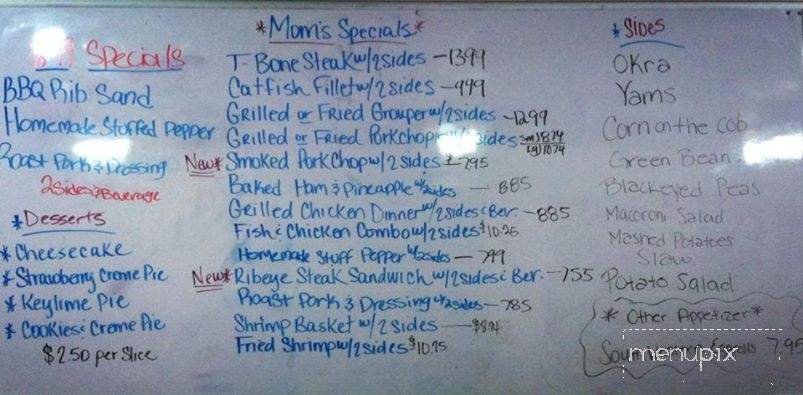 Specials
BBQ Rib Sand
Homemade Stuffed Pepper
Roast Pork & Dressing
2 Sides & Beverage
* Desserts
* Cheesecake
* Strawberry Creme Pie
* Keylime Pie
* Cookies & Creme Pie
$2.50 per Slice
*Mom's Specials*
T-Bone Steak w/2 sides - 1399
Catfish Fillet w/2 sides - 999
Grilled or Fried Grouper w/2 sides - 1299
Grilled or Fried Porkchop sides sm) 874 lg) 1074
New* Smoked Pork Chop w/2 sides - 795
Baked Ham & Pineapple w/2 sides - 885
Grilled Chicken Dinner w/2 sides & Ber. - 885
Fish & Chicken Combo w/2 sides $10.25
Homemade Stuff Pepper w/2 sides - 799
New* Ribeye Steak Sandwich w/2 sides & Ber. - 755
Roast Pork & Dressing w/2 sides - 785
Shrimp Basket w/2 sides - $8.24
Fried Shrimp w/2 sides $10.75
* Sides
Okra
Yams
Corn on the cob
Green Bean
Blackeyed Peas
Macaroni Salad
Mashed Potatoes
Slaw
Potato Salad
* Other Appetizer *
7.95
menupix